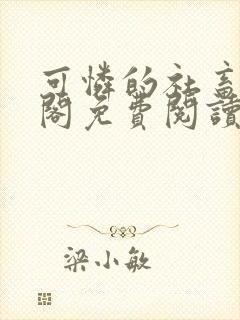 可憐的社畜
閣免費閱讀
梁小敏